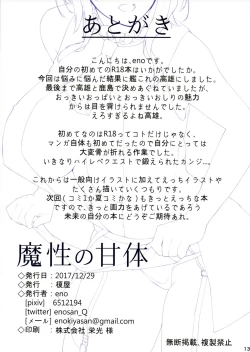 あとがき
こんにちは、enoです。
自分の初めてのR18本はいかがでしたか。
今回は悩みに悩んだ結果に艦これの高雄にしました。
最後まで高雄と鹿島で決めあぐねていましたが、
おっきいおっぱいとおっきいおしりの魅力
からは目を背けられませんでした。
えろすぎるよね高雄。
初めてなのはR18ってコトだけじゃなく、
マンガ自体も初めてだったので自分にとっては
大変骨が折れる作業でした。
いきなりハイレベクエストで鍛えられたカンジ…。
これからは一般向けイラストに加えてえっちイラストや
たくさん描いていくつもりです。
次回(コミ1か夏コミかな)もきっとえっちな本
ですので、きっと画力をあげているであろう
未来の自分の本にどうぞご期待あれ。
魔性の甘体
◇発行日：2017/12/29
◇発行　：榎屋
◇発行者：eno
[pixiv]　6512194
[twitter] enosan_Q
[メール] enokiyasan@gmail.com
◇印刷　：株式会社 栄光 様
無断掲載,複製禁止
13